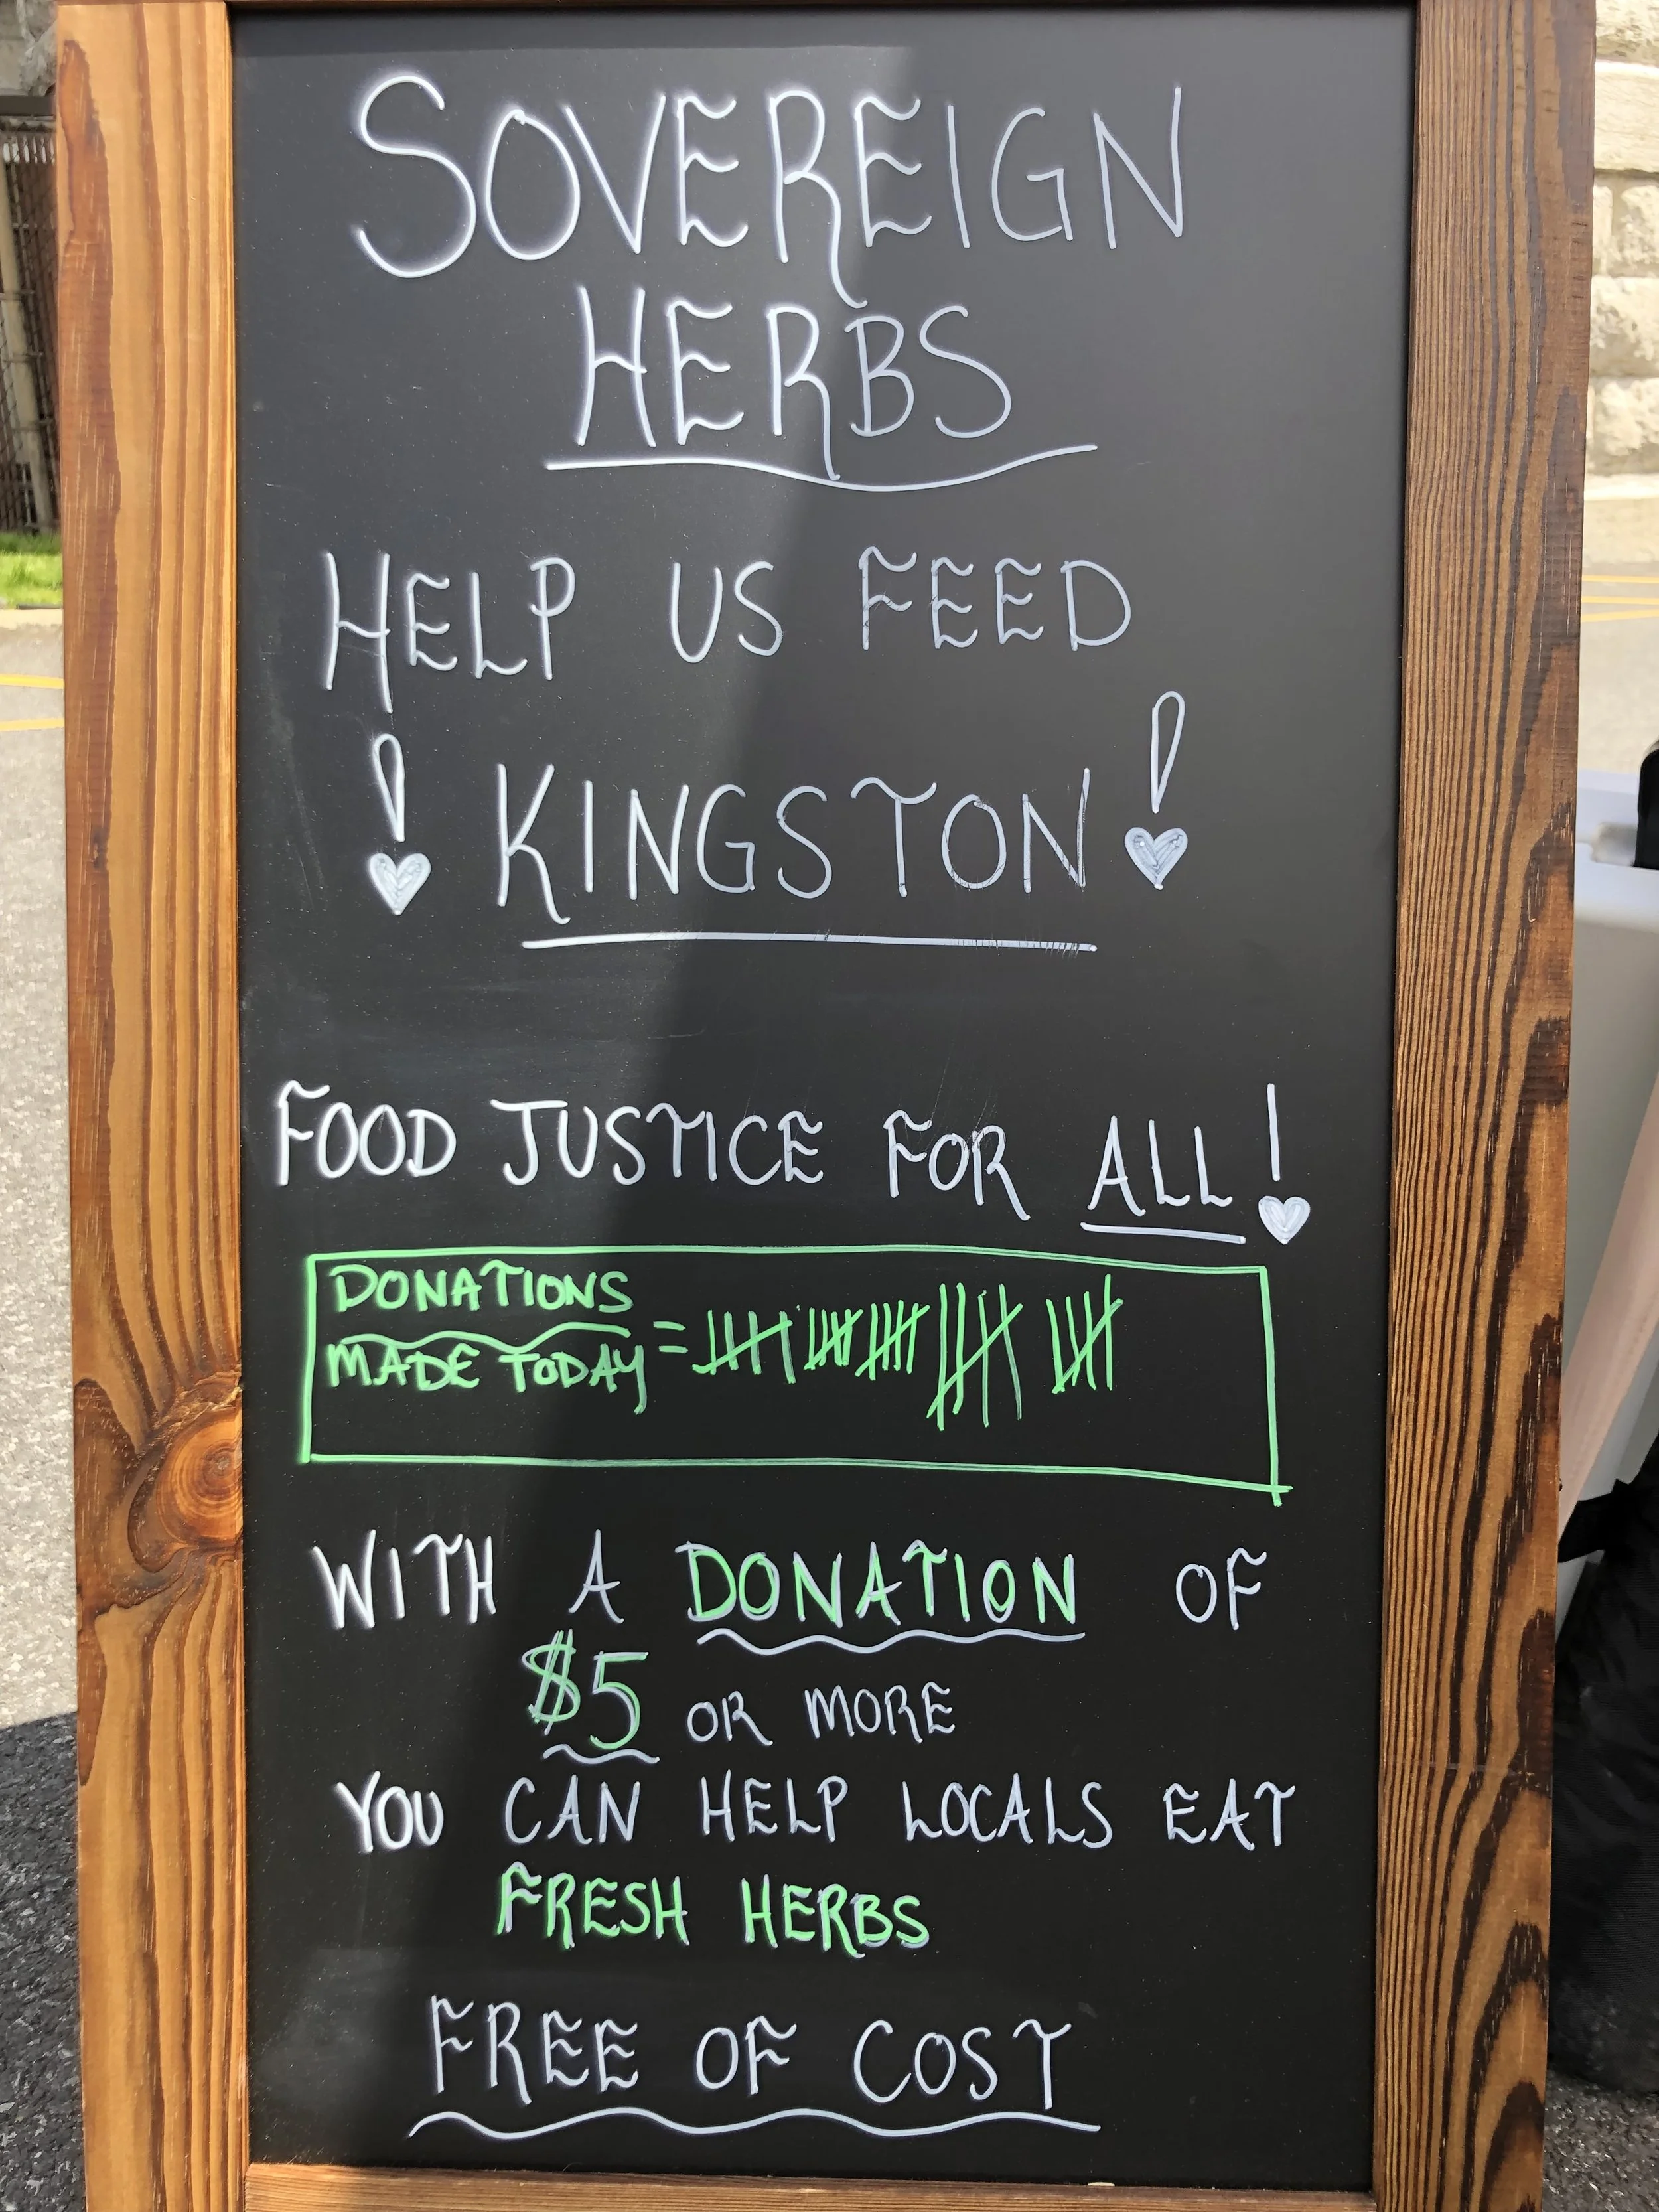 SOVEREIGN
HERBS
HELP US FEED
! KINGSTON !
FOOD JUSTICE FOR ALL!
DONATIONS
MADE TODAY =
WITH A DONATION OF
$5 OR MORE
YOU CAN HELP LOCALS EAT
FRESH HERBS
FREE OF COST